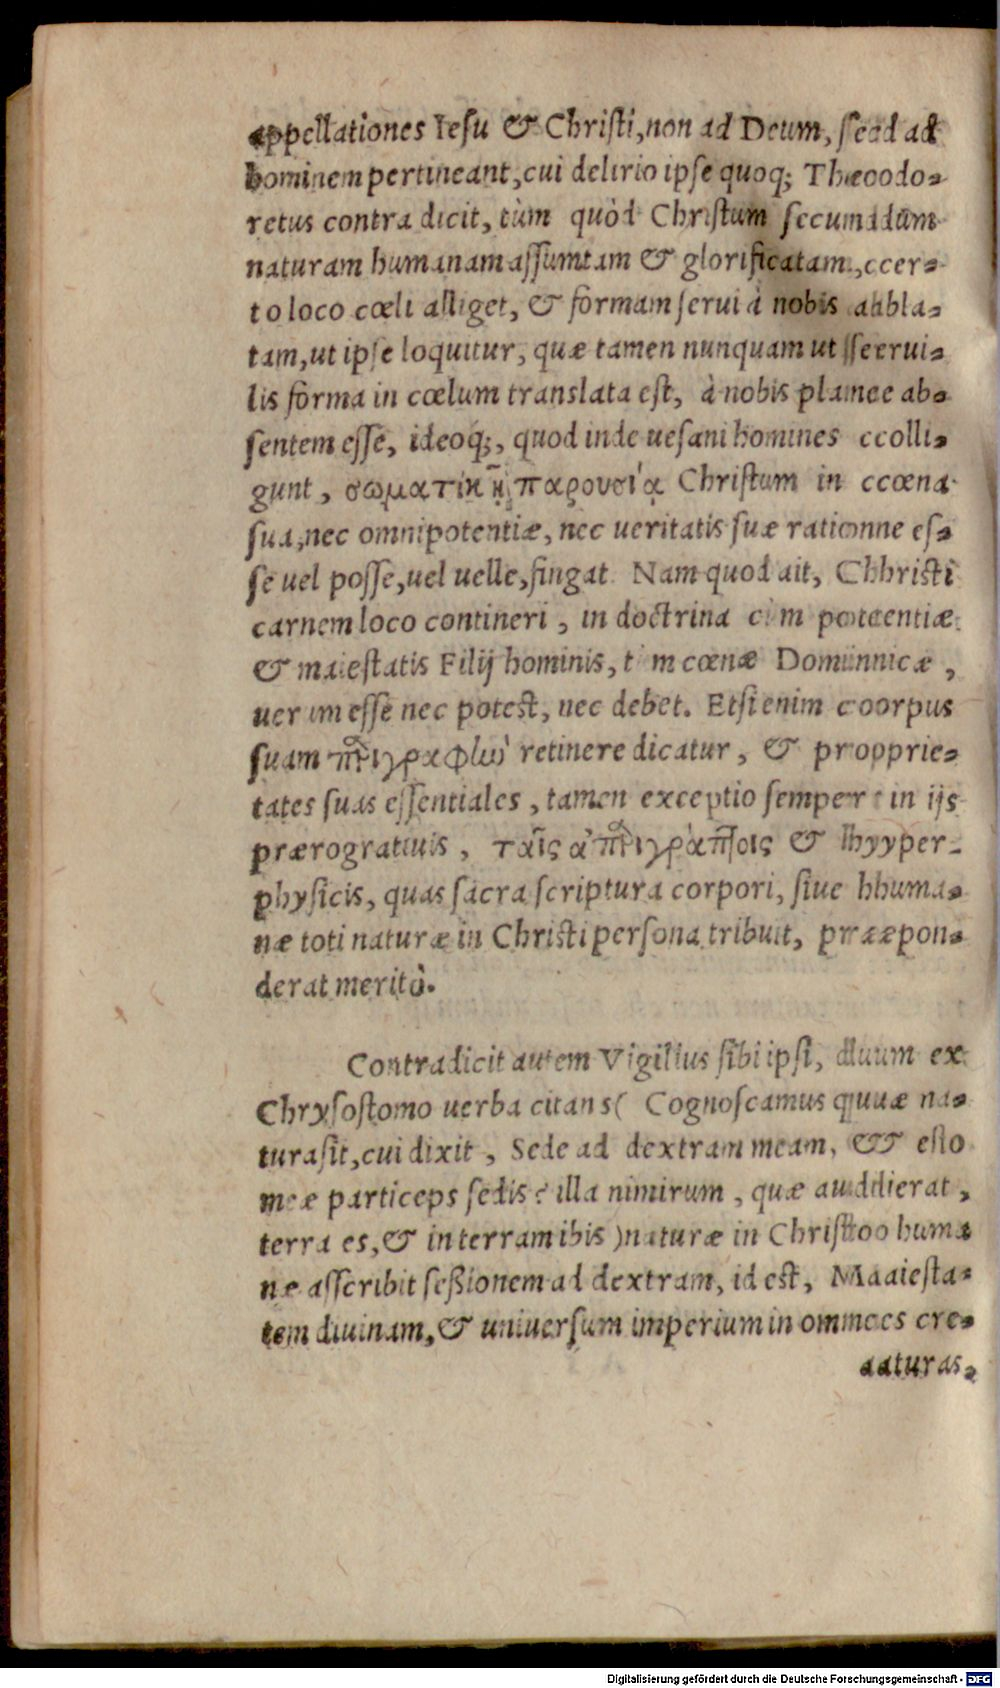 appellationes Iesu & Christi, non ad Deum, sed ad
hominem pertineant, cui delirio ipse quoq; Theodo-
retus contra dicit, tùm quòd Christum secundum
naturam humanam assumtam & glorificatam, cer-
to loco cœli alliget, & formam serui à nobis abla-
tam, ut ipse loquitur, quæ tamen nunquam ut serui-
lis forma in cœlum translata est, à nobis plane ab-
sentem esse, ideoq;, quod inde uesani homines colli-
gunt, σωματικῇ παρουσίᾳ Christum in cœna
sua, nec omnipotentiæ, nec ueritatis suæ ratione es-
se uel posse, uel uelle, fingat. Nam quod ait, Christi
carnem loco contineri, in doctrina cùm potentiæ
& maiestatis Filij hominis, tùm cœnæ Dominicæ,
uerum esse nec potest, nec debet. Etsi enim corpus
suam περιγραφὼ retinere dicatur, & proprie-
tates suas essentiales, tamen exceptio semper in ijs
prærogatiuis, ταῖς ἀπεριγράπτοις & hyper-
physicis, quas sacra scriptura corpori, siue huma-
næ toti naturæ in Christi persona tribuit, præpon-
derat meritò.
Contradicit autem Vigilius sibi ipsi, dum ex
Chrysostomo uerba citans ( Cognoscamus quæ na-
tura sit, cui dixit, Sede ad dextram meam, & esto
meæ particeps sedis? illa nimirum, quæ audierat,
terra es, & in terram ibis ) naturæ in Christo huma
næ asscribit seßionem ad dextram, id est, Maiesta-
tem diuinam, & uniuersum imperium in omnes cre-
aturas.
Digitalisierung gefördert durch die Deutsche Forschungsgemeinschaft - DFG